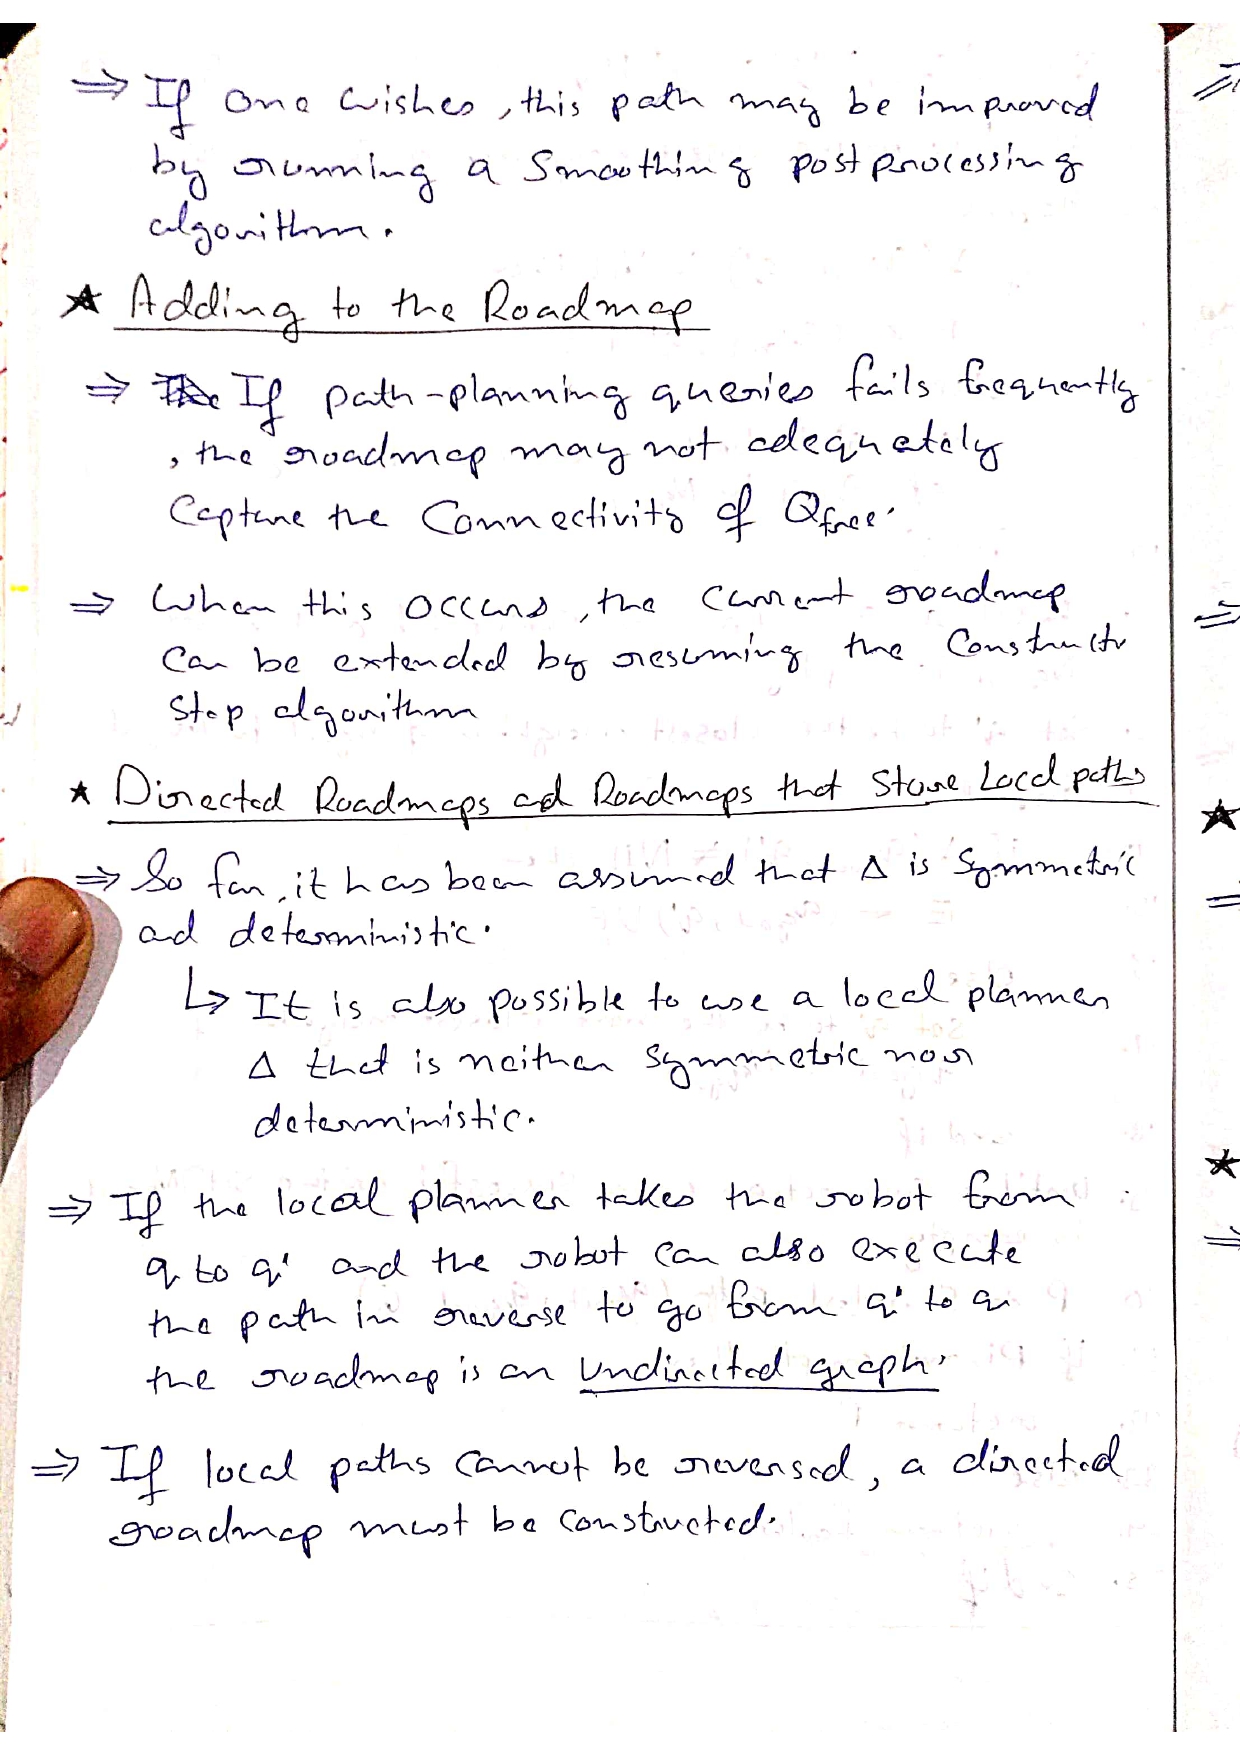 ⇒ If one wishes, this path may be improved
by running a smoothing postprocessing
algorithm.
★ Adding to the Roadmap
⇒ If path-planning queries fails frequently
, the roadmap may not adequately
Capture the Connectivity of Qfree.
⇒ When this occurs, the current roadmap
can be extended by resuming the Constructn
step algorithm
★ Directed Roadmaps ad Roadmaps that Store Local paths
⇒ So far, it has been assumed that Δ is Symmetric
ad deterministic.
↳ It is also possible to use a local planner
Δ that is neither symmetric nor
deterministic.
⇒ If the local planner takes the robot from
q to q' and the robot can also execute
the path in reverse to go from q' to q
the roadmap is an Undirected graph.
⇒ If local paths cannot be reversed, a directed
roadmap must be constructed.